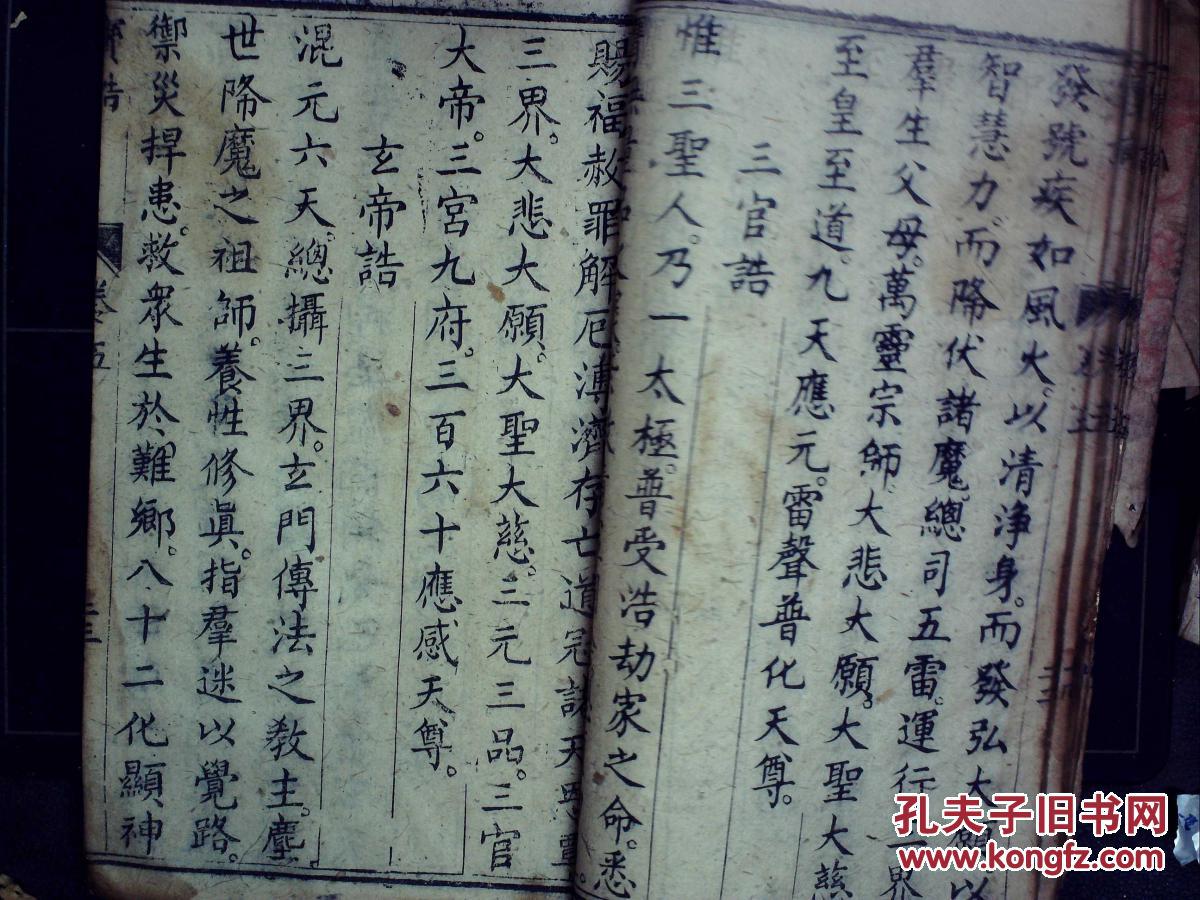 發號疾如風火。以清淨身。而發弘大願以
智慧力。而降伏諸魔。總司五雷。運行三界
羣生父母。萬靈宗師。大悲大願。大聖大慈
至皇至道。九天應元。雷聲普化天尊。
三官誥
惟三聖人。乃一太極。普受浩劫家之命。悉
賜福赦罪解厄溥濟存亡道冠諸天恩覃。
三界。大悲大願。大聖大慈。三元三品。三官
大帝。三宮九府。三百六十應感天尊。
玄帝誥
混元六天。總攝三界。玄門傳法之教主。塵
世降魔之祖師。養性修眞。指羣迷以覺路。
禦災捍患。救衆生於難鄉。八十二化顯神
卷五
三
孔夫子旧书网
www.kongfz.com